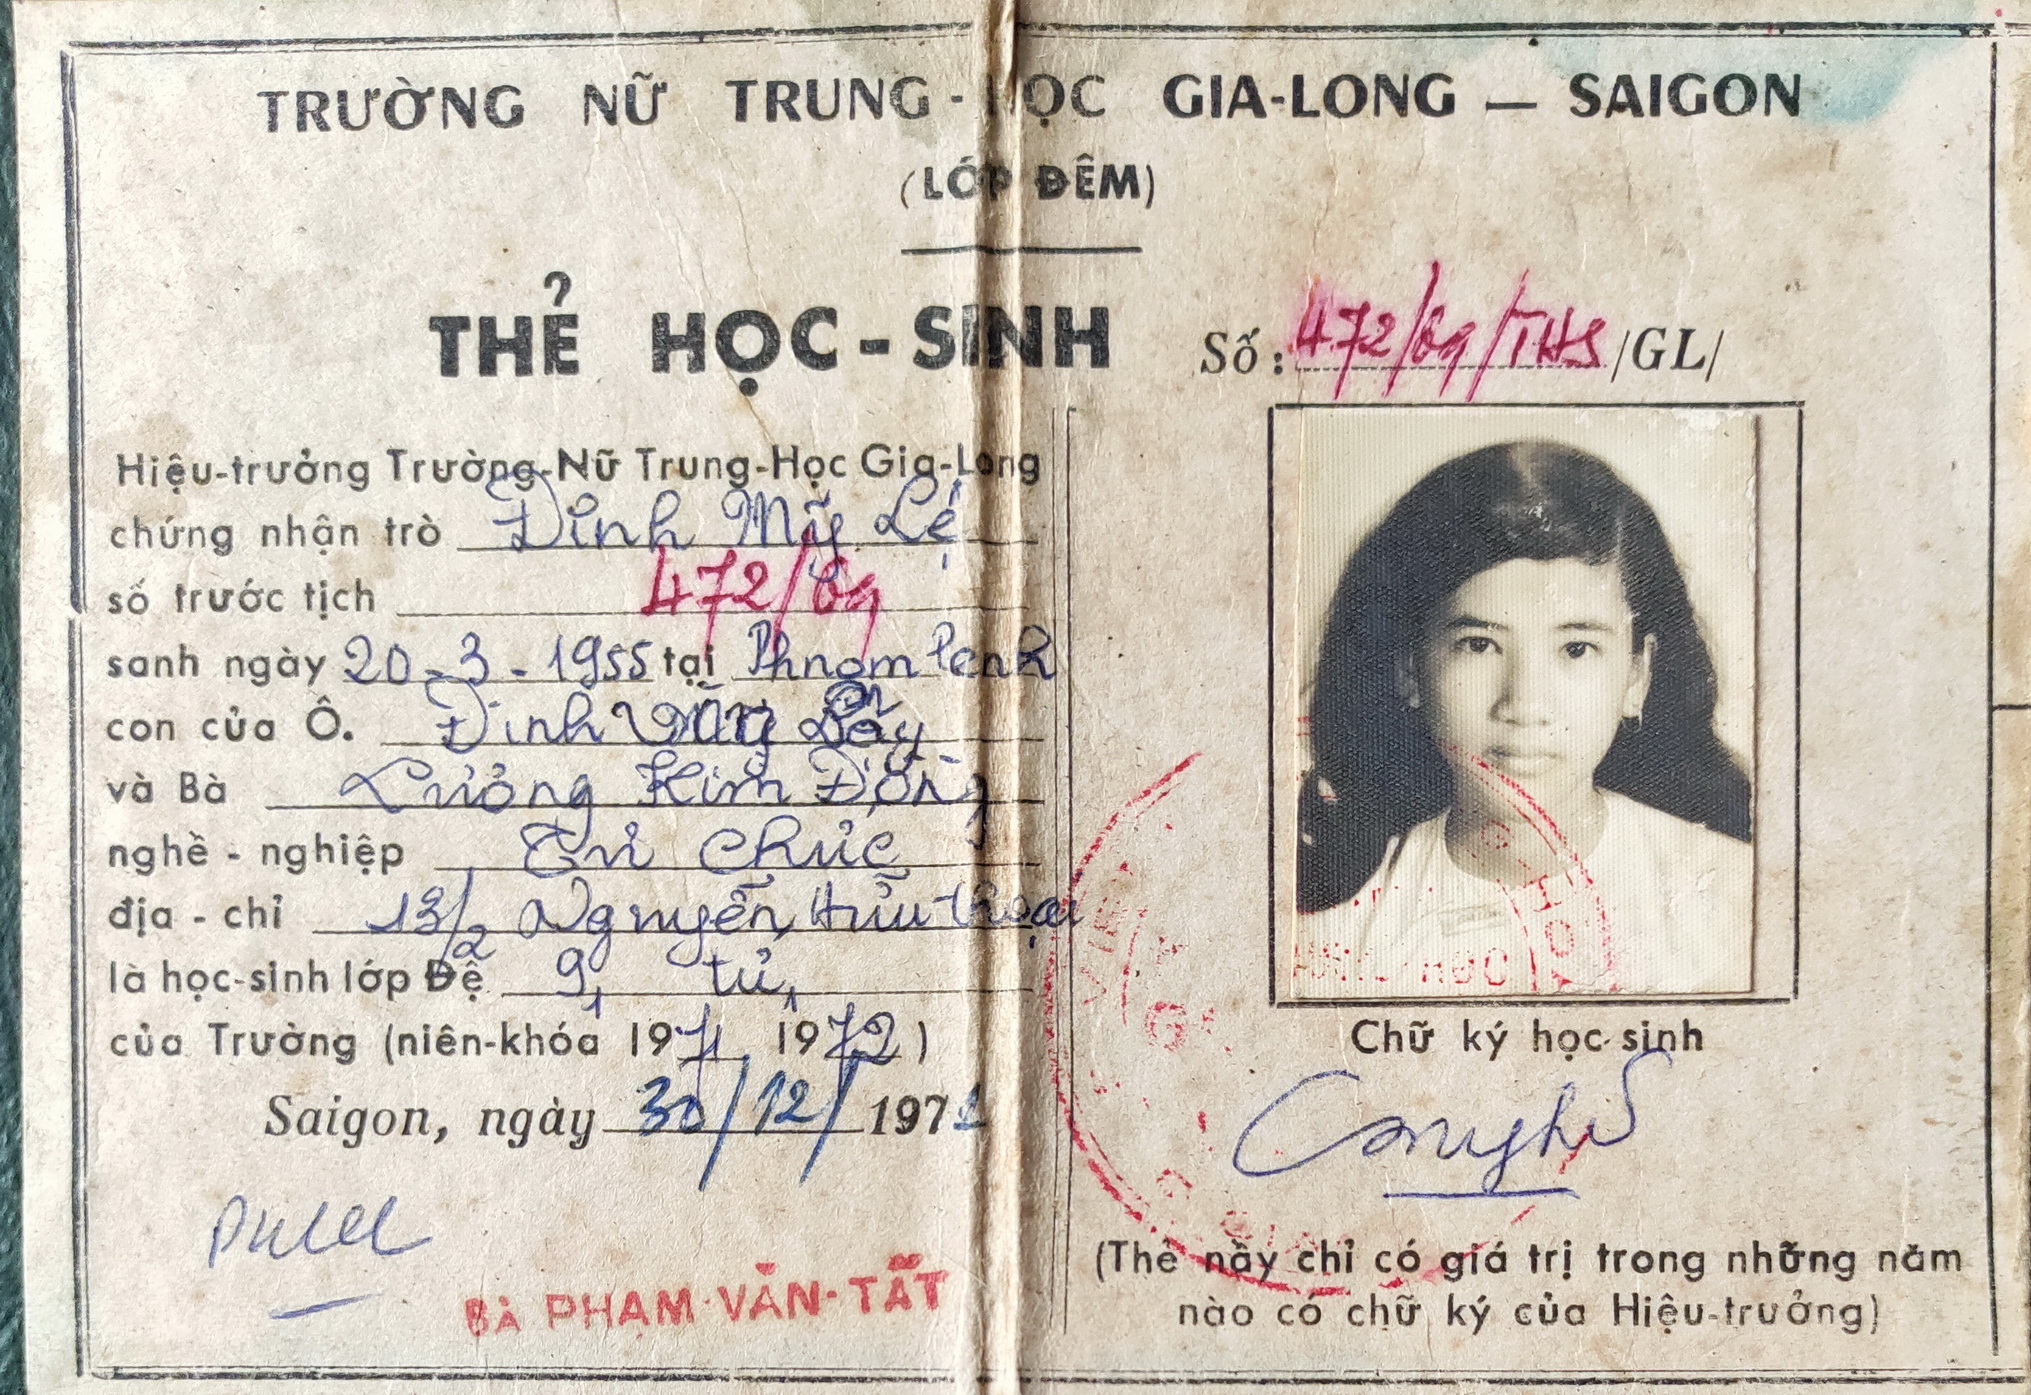 TRƯỜNG NỮ TRUNG-HỌC GIA-LONG — SAIGON
(LỚP ĐÊM)
THẺ HỌC-SINH
Số: 472/69/THS/GL/
Hiệu-trưởng Trường-Nữ Trung-Học Gia-Long
chứng nhận trò Đinh Mỹ Lệ
số trước tịch 472/69
sanh ngày 20-3-1955 tại Phnom Penh
con của Ô. Đinh
và Bà Lương Kim
nghề - nghiệp Tư chức
địa - chỉ 13/2 Nguyễn Hữu Thoại
là học-sinh lớp Đệ 9 tứ
của Trường (niên-khóa 1971 1972)
Saigon, ngày 30/12/1971
BÀ PHẠM-VĂN-TẤT
Chữ ký học sinh
(Thẻ nầy chỉ có giá trị trong những năm
nào có chữ ký của Hiệu-trưởng)